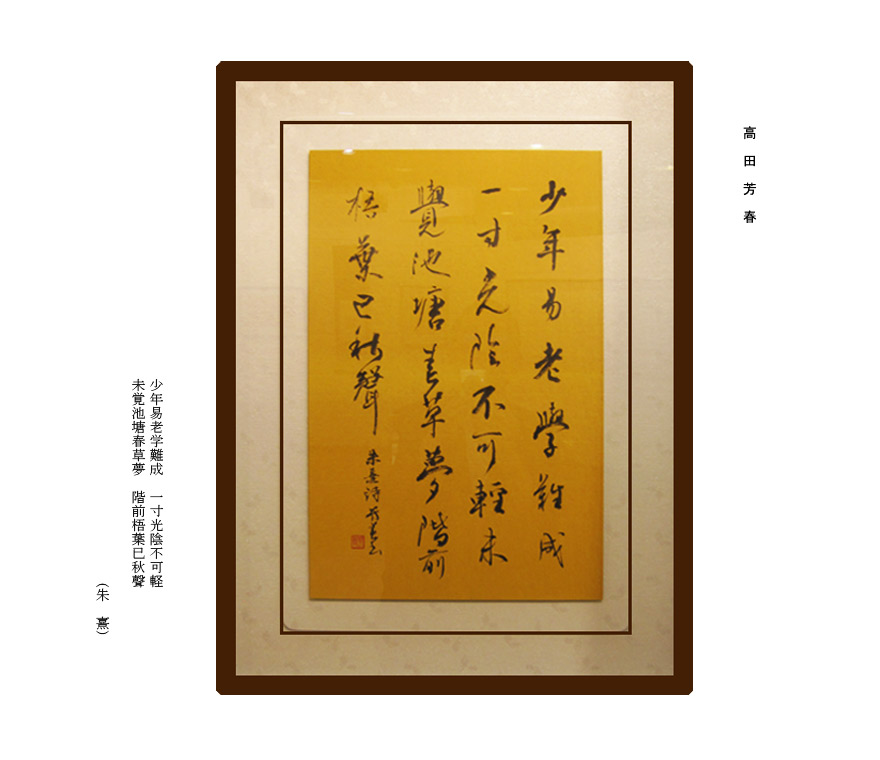 高田芳春
少年易老學難成
一寸光陰不可輕未
覺池塘春草夢階前
梧葉已秋聲
朱熹詩 芳春書
少年易老学難成　一寸光陰不可軽
未覚池塘春草夢　階前梧葉已秋聲
（朱　熹）